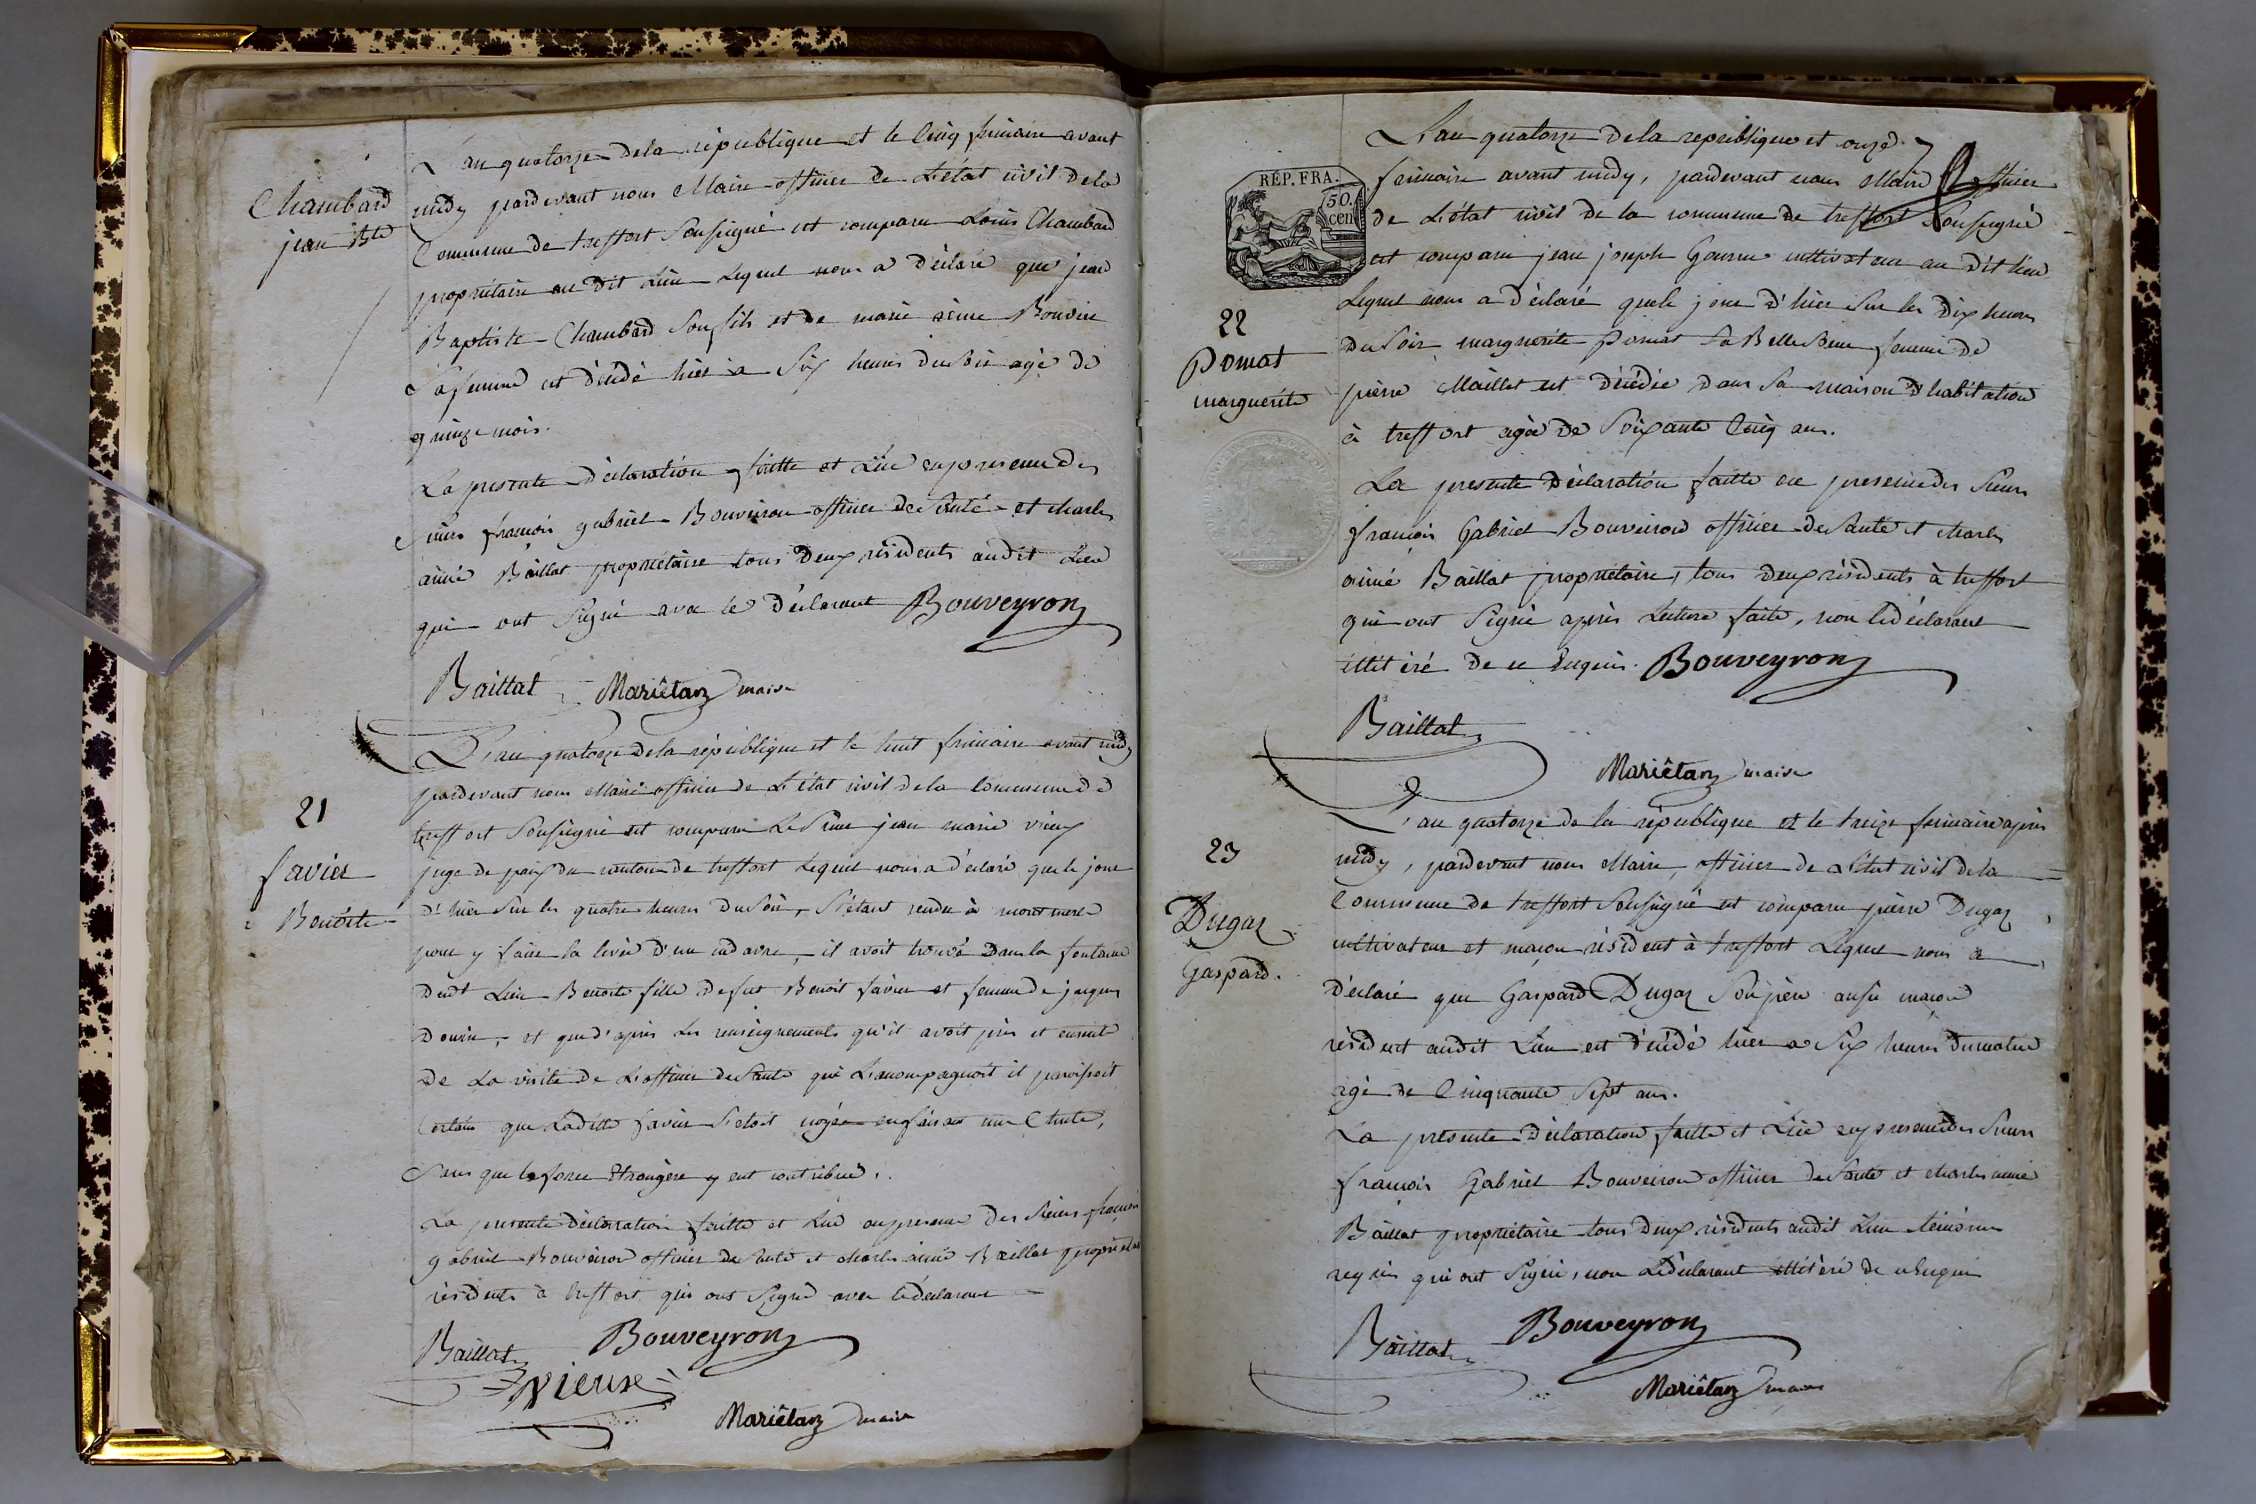 Chambard
jean Bte
L'an quatorze de la république et le cinq frimaire avant
midy pardevant nous Maire officier de L'état civil de la
Commune de treffort Soussigné est comparu Louis Chambard
propriétaire au dit Lieu Lequel nous a déclaré que jean
Baptiste Chambard son fils et de marie aimé Bouvier
Sa femme est décédé hier a Six heures du soir agé de
quinze mois.
La presente déclaration faitte et Lue en presence des
Sieurs françois gabriel Bouveiron officier de Santé et charles
aimé Baillat propriétaire tous deux résidents audit Lieu
qui ont Signé avec le déclarant Bouveyron
Baillat Mariêtan maire
21
favier
Benoite
L'an quatorze de la république et le huit frimaire avant midy
pardevant nous Maire officier de L'état civil de la Commune de
treffort Soussigné est comparu Le Sieur jean marie vieux
juge de paix du canton de treffort Lequel nous a déclaré que le jour
d'hier Sur les quatre heures du Soir, S'étant rendu à montmerle
pour y faire la levée d'un cadavre, il avoit trouvé dans la fontaine
dudt Lieu Benoite fille de fut Benoit favier et femme de jacques
Douvre, et que d'après les renseignements qu'il avoit pris et ensuite
de La visite de L'officier de Santé qui L'accompagnoit il paroissoit
Certain que Laditte favier S'etoit noyée en faisant une Chute,
Sans que la force Etrangère y eut contribué.
La presente déclaration faitte et Lue en presence des Sieurs françois
gabriel Bouveiron officier de Santé et charles aimé Baillat propriétaire
résidents à treffort qui ont Signé avec le déclarant
Baillat Bouveyron
vieux
Mariêtan maire
RÉP. FRA.
50.
cen
22
Pomat
marguerite
L'an quatorze de la republique et onze
frimaire avant midy, pardevant nous Maire officier
de L'état civil de la commune de treffort Soussigné
est comparu jean joseph cultivateur au dit lieu
Lequel nous a déclaré que le jour d'hier Sur les dix heures
du Soir marguerite pomat Sa Belle Soeur femme de
pierre Maillet est décédée dans Sa maison d'habitation
à treffort agée de Soixante Cinq ans.
La presente déclaration faitte en presence des Sieurs
françois Gabriel Bouveiron officier de Santé et charles
aimé Baillat propriétaire, tous deux résidents à treffort
qui ont Signé après Lecture faite, non le déclarant
illitéré de ce Enquis. Bouveyron
Baillat
Mariêtan maire
23
Dugaz
Gaspard.
L'an quatorze de la république et le treize frimaire après
midy, pardevant nous Maire, officier de L'état civil de la
Commune de treffort Soussigné est comparu pierre Dugaz
cultivateur et maçon résident à treffort Lequel nous a
déclaré que Gaspard Dugaz Son père aussi maçon
résident audit Lieu est décédé hier a Six heures du matin
agé de Cinquante Sept ans.
La presente déclaration faitte et Lue en presence des Sieurs
françois Gabriel Bouveiron officier de Santé et charles aimé
Baillat propriétaire tous deux résidents audit Lieu témoins
requis qui ont Signé, non Le déclarant illitéré de ce Enquis
Baillat Bouveyron
Mariêtan maire